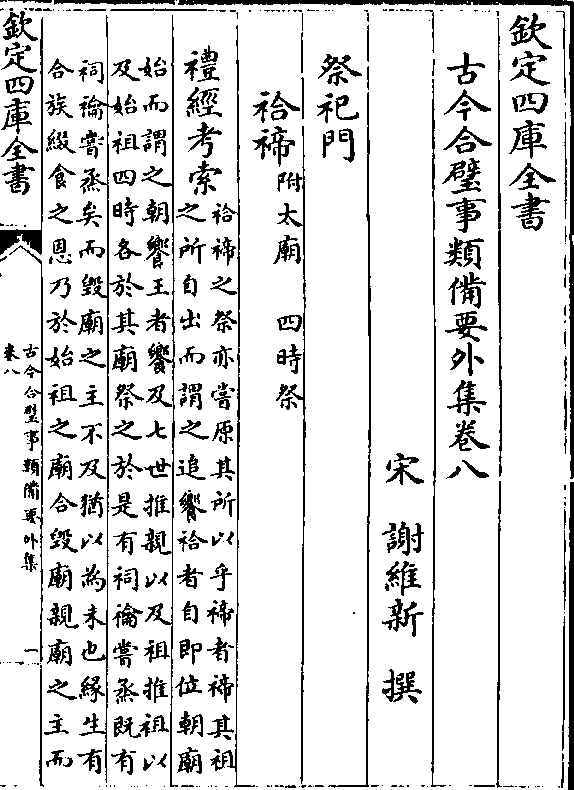 欽定四庫全書
古今合璧事類備要外集卷八
宋 謝維新 撰
祭祀門
祫禘附太廟 四時祭
禮經考索祫禘之祭亦嘗原其所以乎禘者禘其祖
之所自出而謂之追饗祫者自即位朝廟
始而謂之朝饗王者饗及七世推親以及祖推祖以
及始祖四時各於其廟祭之於是有祠禴嘗烝既有
祠禴嘗烝矣而毀廟之主不及猶以為未也緣生有
合族綴食之恩乃於始祖之廟合毀廟親廟之主而
欽定四庫全書
古今合璧事類備要外集
卷八
一